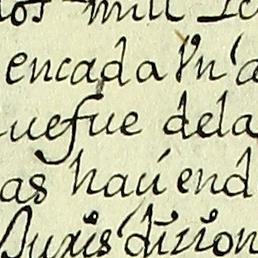 los mill
encada Vn'a
uefue dela
as hauiend
Juris dizion